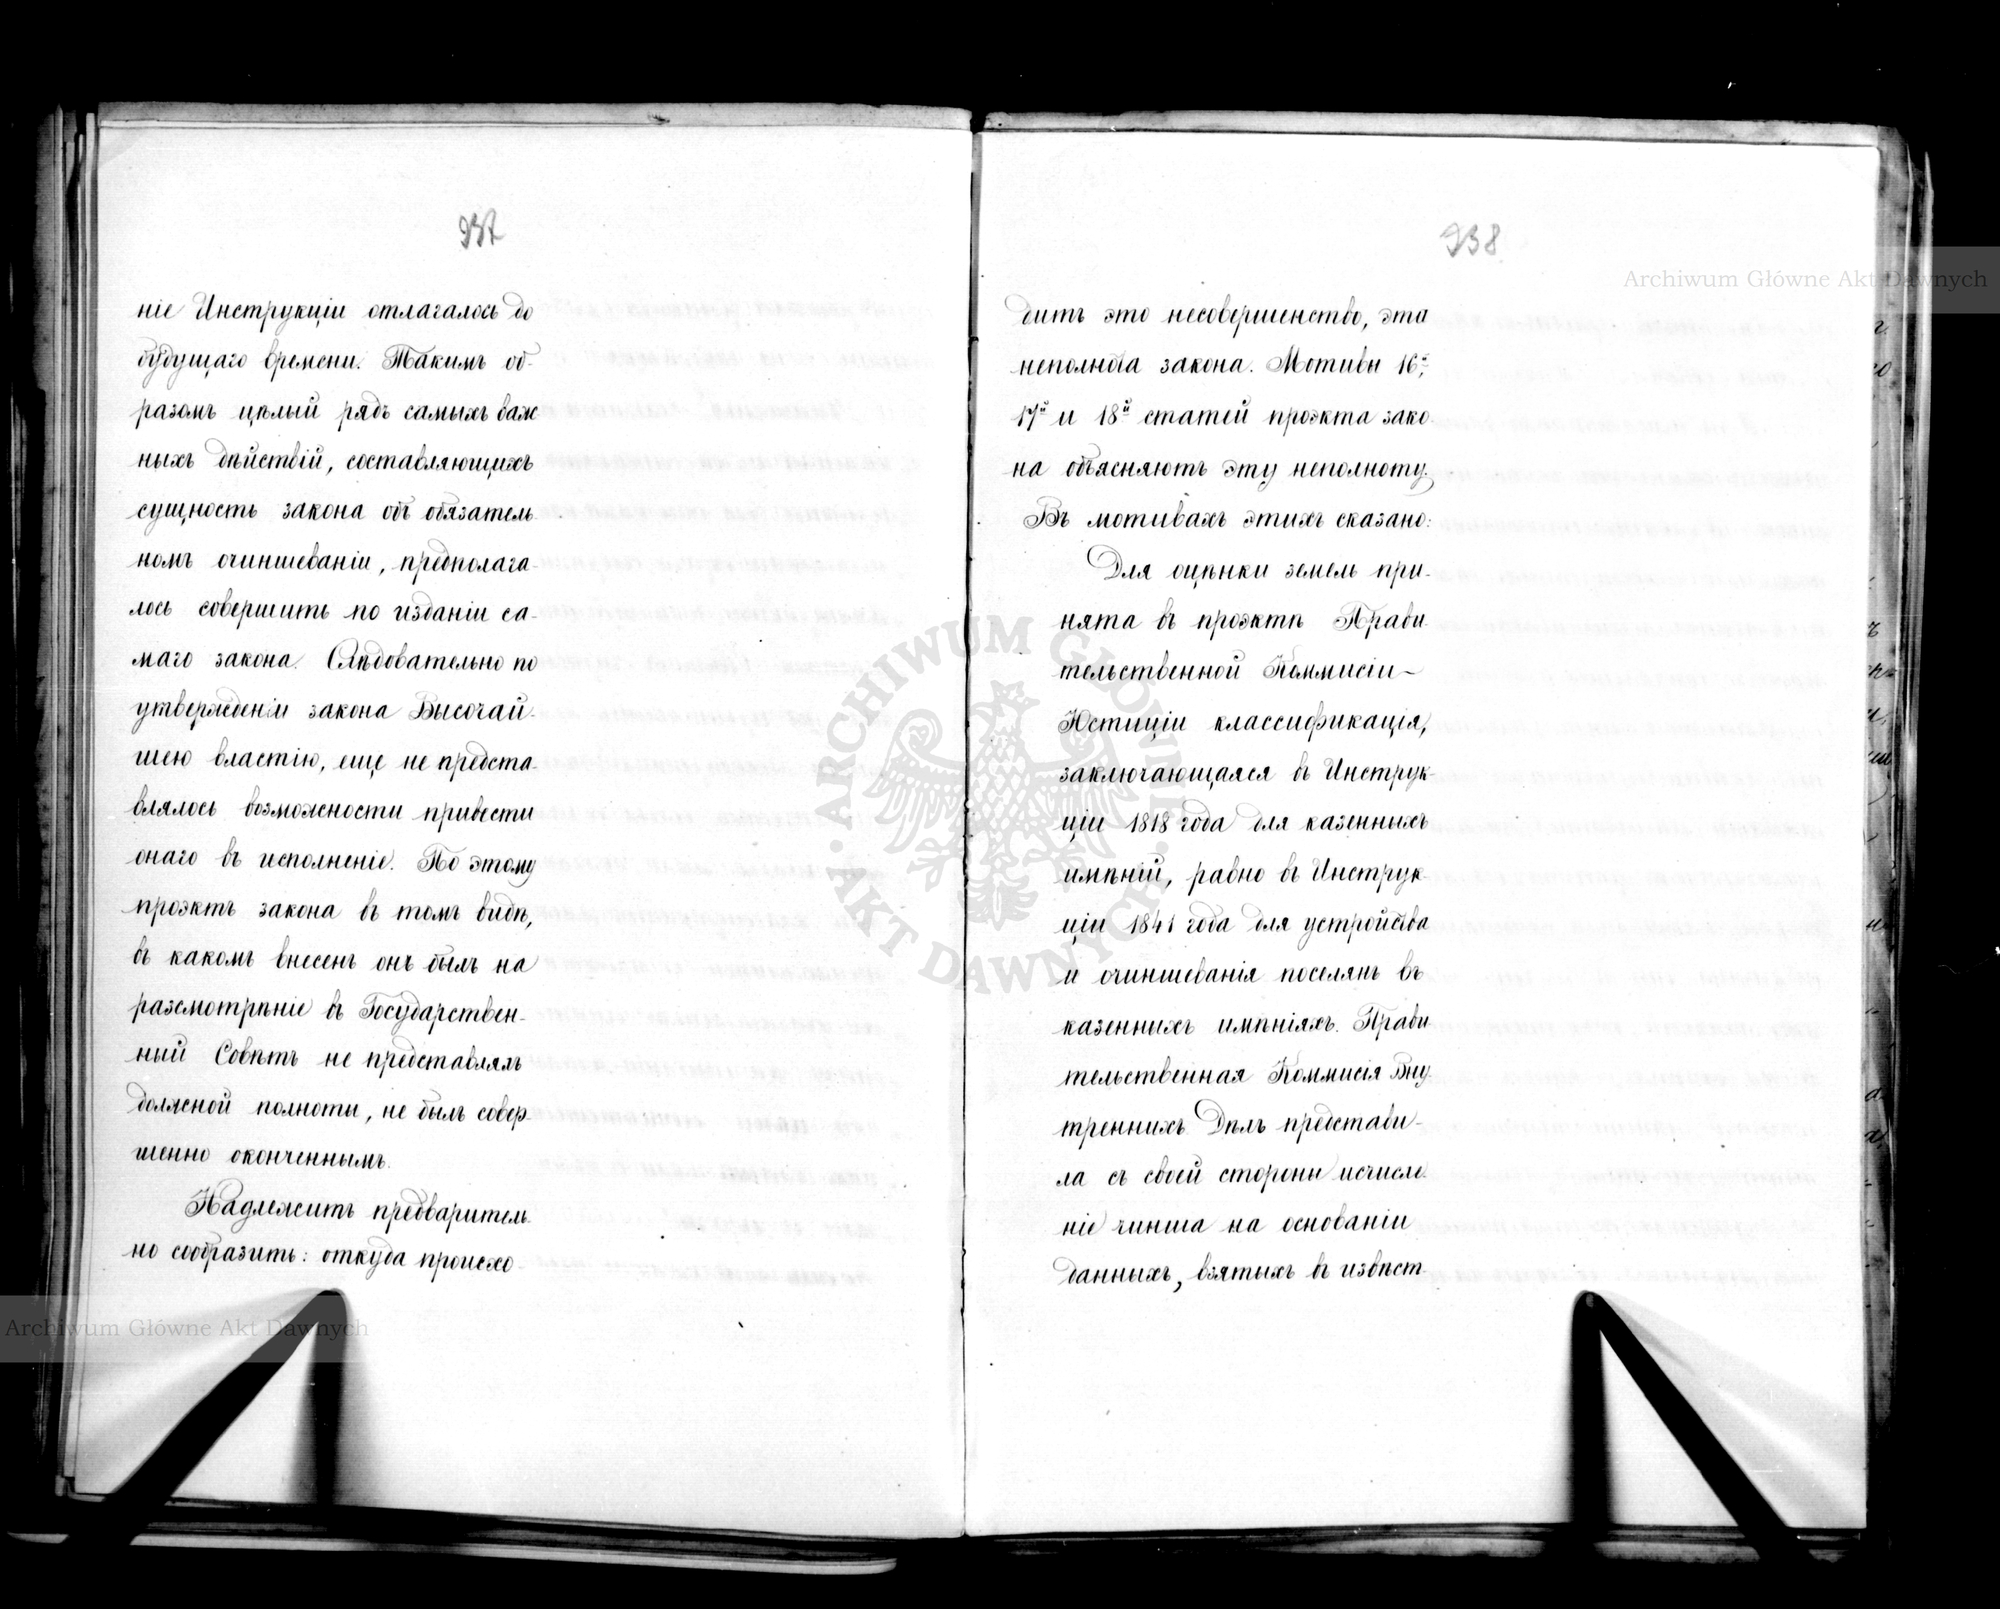 937
ніе Инструкціи отлагалось до
будущаго времени. Такимъ об-
разомъ цѣлый рядъ самыхъ важ
ныхъ дѣйствій, составляющихъ
сущность закона объ обязатель
номъ очиншеваніи, предполага-
лось совершить по изданіи са-
маго закона. Слѣдовательно по
утвержденіи закона Высочай-
шею властію, еще не предста-
влялось возможности привести
онаго въ исполненіе. По этому
проэктъ закона въ томъ видѣ,
въ какомъ внесенъ онъ былъ на
разсмотрѣніе въ Государствен-
ный Совѣтъ не представлялъ
должной полноты, не былъ совер
шенно оконченнымъ.
Надлежитъ предваритель
но сообразить: откуда происхо
938
дитъ это несовершенство, эта
неполнота закона. Мотивы 16й,
17й и 18й статей проэкта зако
на объясняютъ эту неполноту.
Въ мотивахъ этихъ сказано:
Для оцѣнки земель при-
нята въ проэктѣ Прави
тельственной Коммисіи
Юстиціи классификація,
заключающаяся въ Инструк
ціи 1818 года для казенныхъ
имѣній, равно въ Инструк
ціи 1841 года для устройства
и очиншеванія поселянъ въ
казенныхъ имѣніяхъ. Прави
тельственная Коммисія Вну
треннихъ Дѣлъ представи-
ла съ своей стороны исчисле
ніе чинша на основаніи
данныхъ, взятыхъ въ извѣст
Archiwum Główne Akt Dawnych
Archiwum Główne Akt Dawnych
ARCHIWUM GŁÓWNE AKT DAWNYCH